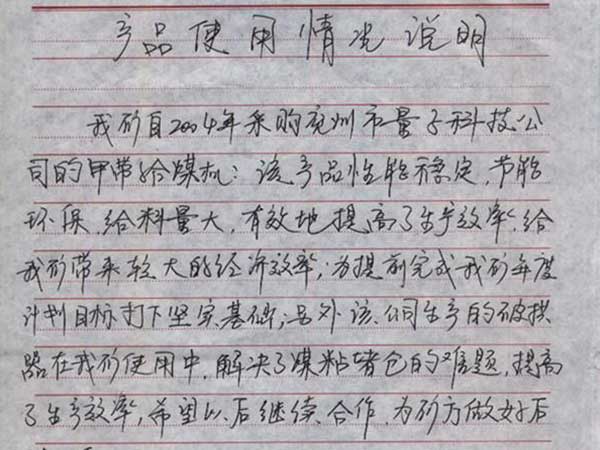 产品使用情况说明
我矿自2004年采购兖州市量子科技公
司的甲带给煤机；该产品性能稳定，节能
环保，给料量大，有效地提高了生产效率，给
我矿带来较大的经济效率；为提前完成我矿年度
计划目标打下坚实基础；另外该公司生产的破拱
器在我矿使用中，解决了煤粘堵仓的难题，提高
了生产效率，希望以后继续合作，为矿方做好后